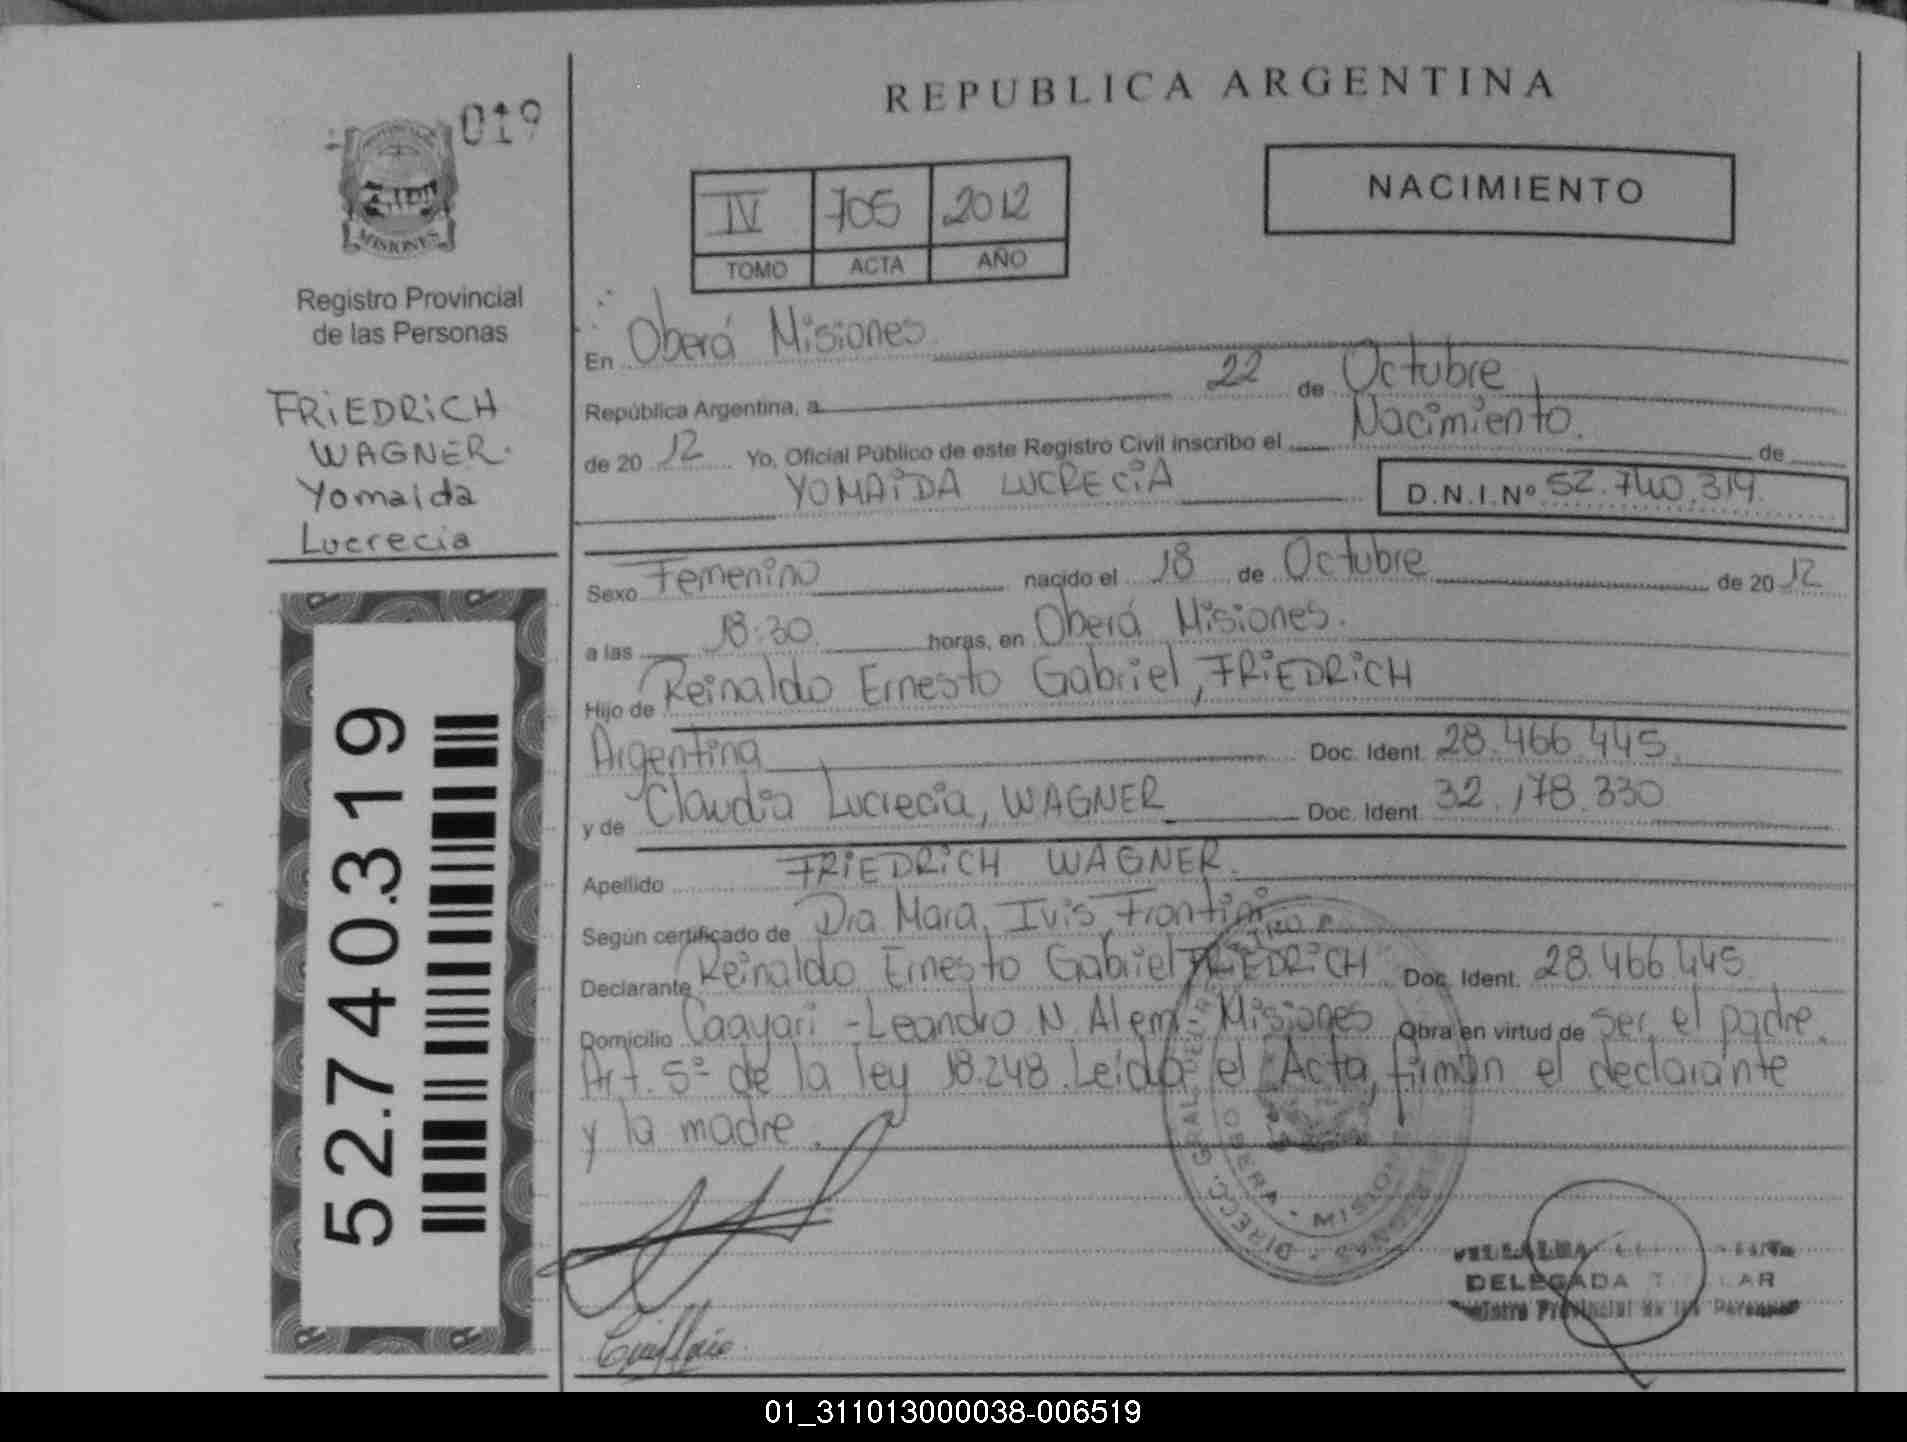 019
MISIONES
Registro Provincial
de las Personas
FRiEDRiCH
WAGNER.
Yomaida
Lucrecia
52.740.319
REPUBLICA ARGENTINA
IV 705 2012
TOMO ACTA AÑO
NACIMIENTO
En Oberá Misiones
República Argentina, a 22 de Octubre
de 20 12 Yo, Oficial Público de este Registro Civil inscribo el Nacimiento. de
YOMAiDA LUCRECiA D.N.I.Nº 52.740.319.
Sexo Femenino nacido el 18 de Octubre de 20 12
a las 18:30 horas, en Oberá Misiones.
Hijo de Reinaldo Ernesto Gabriel, FRiEDRiCH
Argentina Doc. Ident. 28.466.445.
y de Claudia Lucrecia, WAGNER Doc. Ident. 32.178.330
Apellido FRiEDRiCH WAGNER.
Según certificado de Dra Mara, Ivis, Frontini
Declarante Reinaldo Ernesto Gabriel FRiEDRiCH Doc. Ident. 28.466.445
Domicilio Caayari - Leandro N. Alem - Misiones Obra en virtud de ser el padre.
Art. 5º de la ley 18.248. Leída el Acta, firman el declarante
y la madre.
DIRECC. GRAL.
OBERA - MISIONES
DELEGADA
Provincial de las Personas
01_311013000038-006519